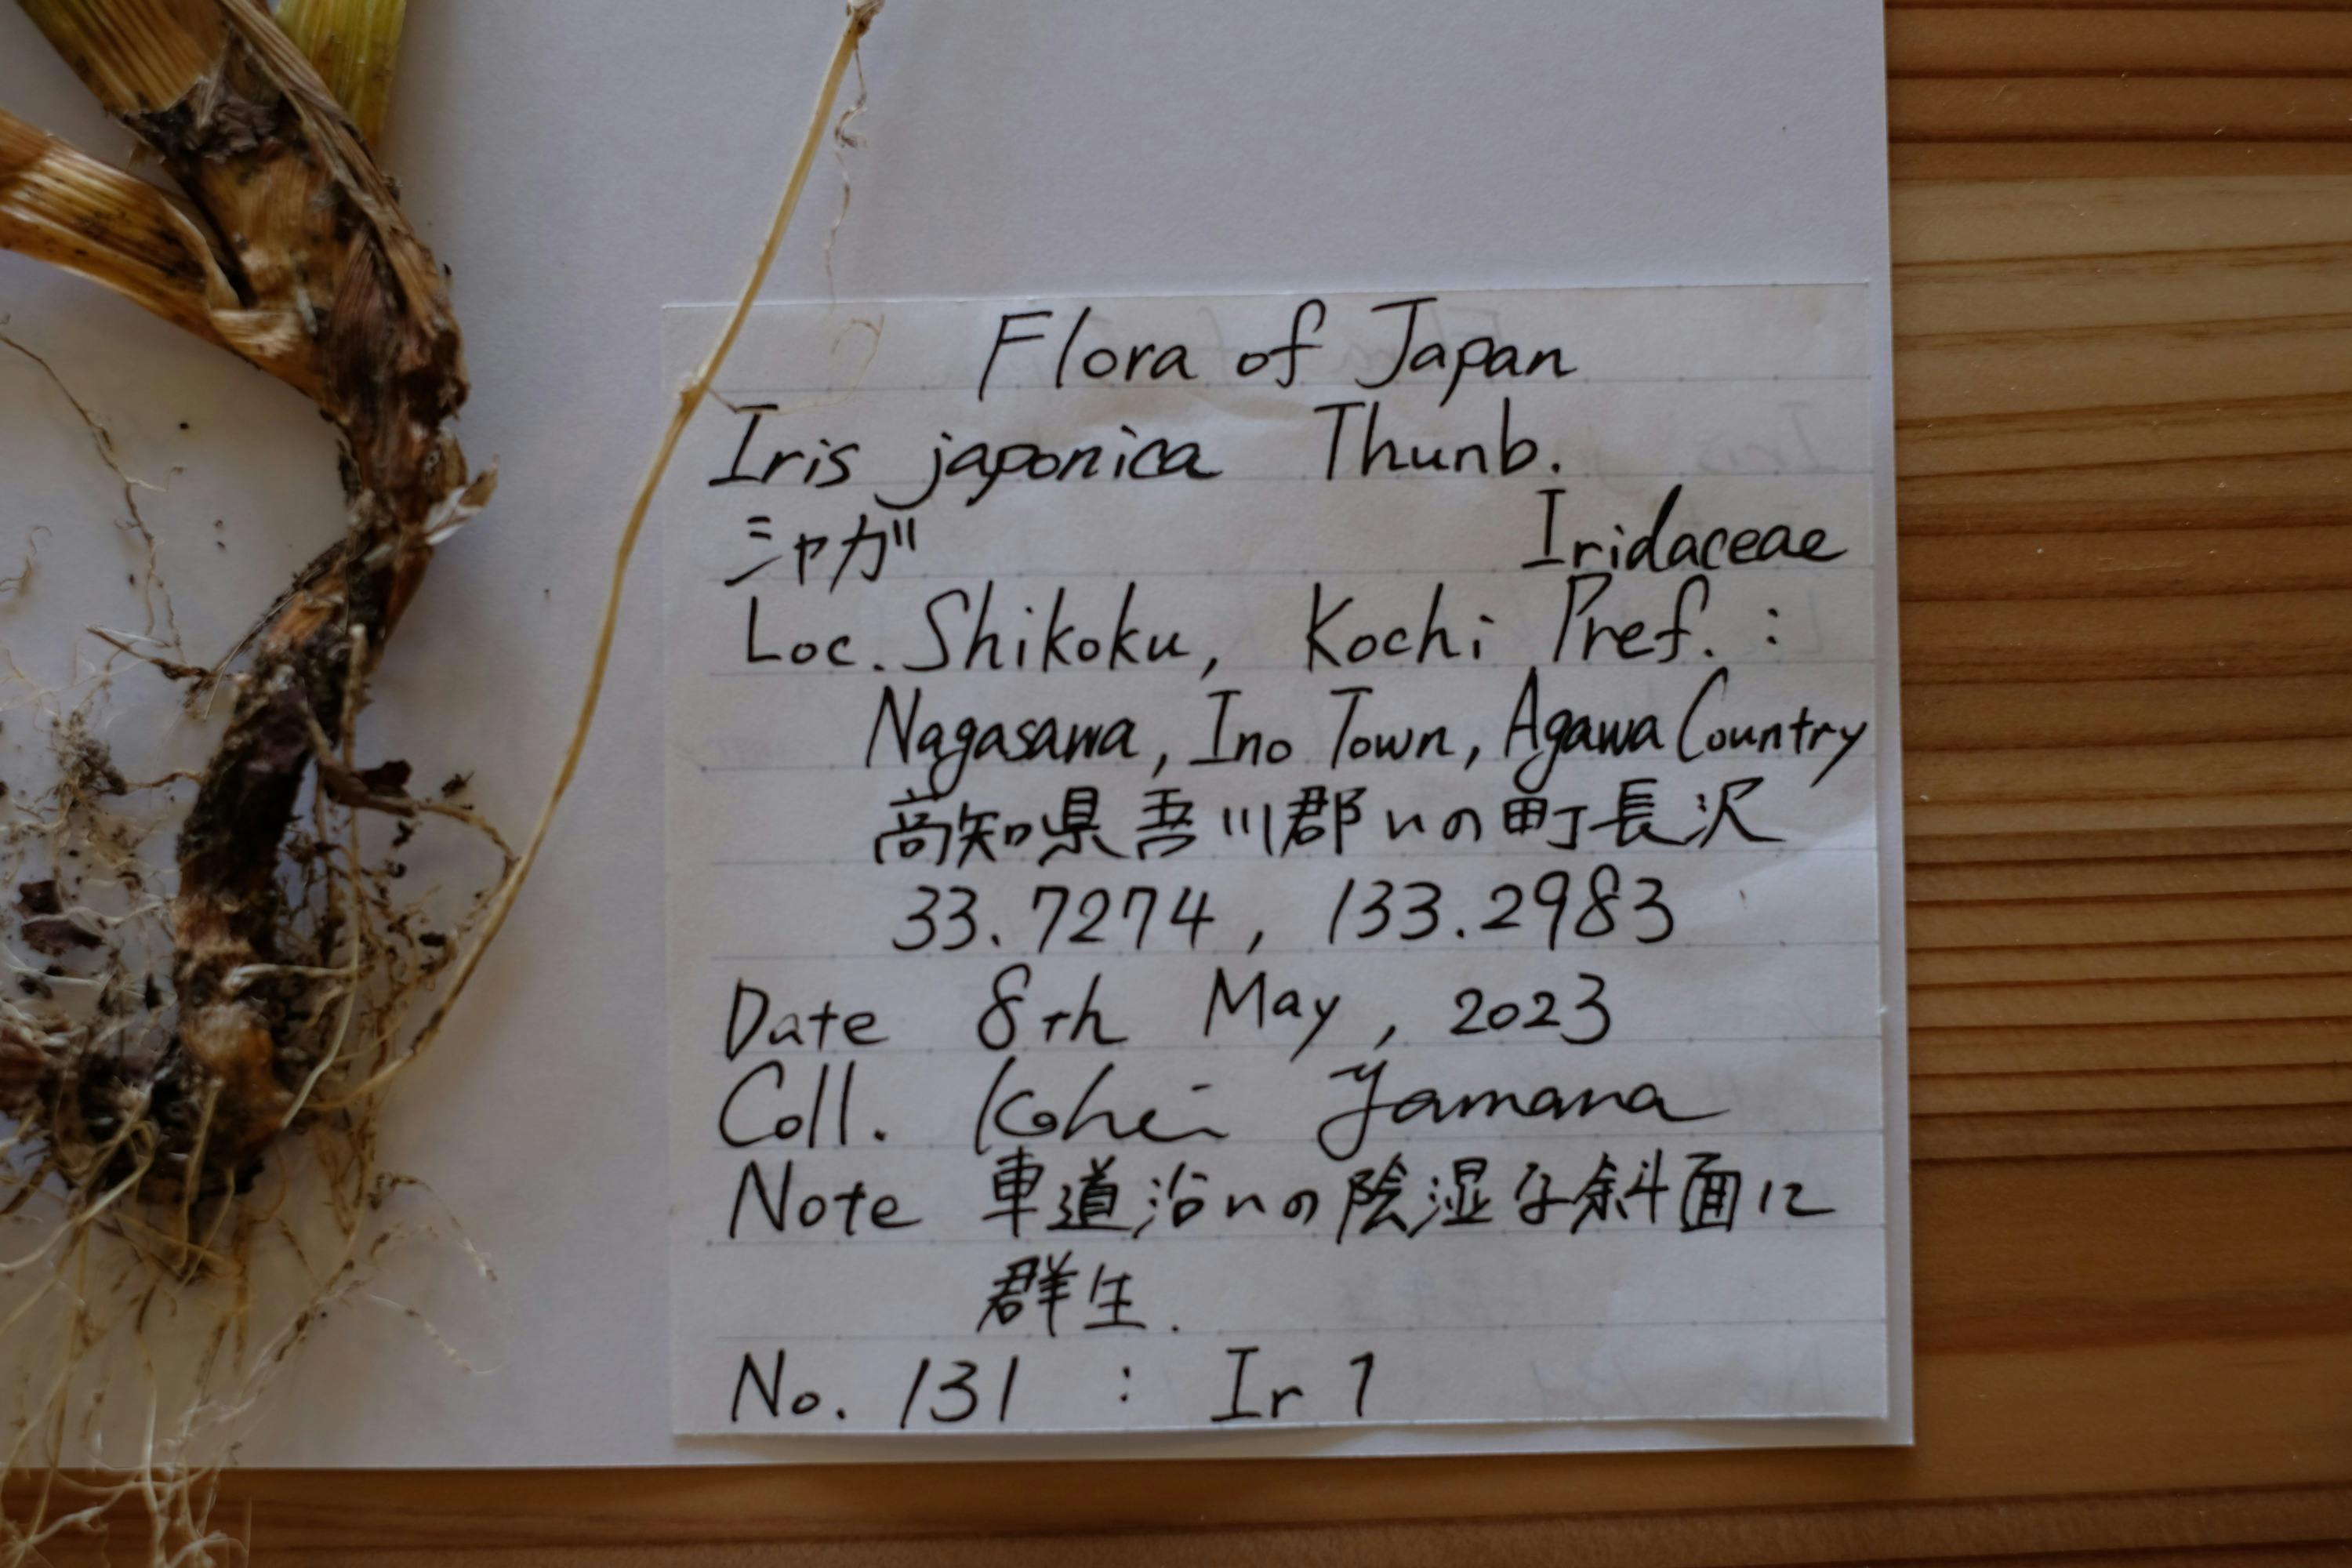 Flora of Japan
Iris japonica Thunb.
シャガ Iridaceae
Loc. Shikoku, Kochi Pref. :
Nagasawa, Ino Town, Agawa Country
高知県吾川郡いの町長沢
33.7274, 133.2983
Date 8th May, 2023
Coll. Kohei Yamana
Note 車道沿いの陰湿な斜面に
群生.
No. 131 : Ir 1